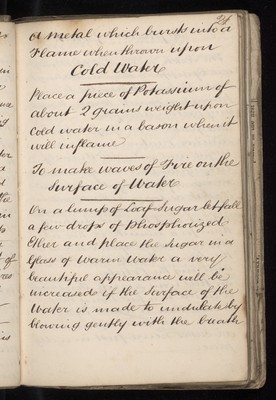 24
A metal which bursts into a
Flame when thrown upon
Cold Water
Place a piece of Potassium of
about 2 grains weight upon
Cold water in a bason when it
will inflame
To make waves of Fire on the
Surface of Water
On a lump of Loaf Sugar let fall
a few drops of Phosphorized
Ether and place the Sugar in a
Glass of Warm Water a very
beautiful appearance will be
increased if the Surface of the
Water is made to undulate by
blowing gently with the breath